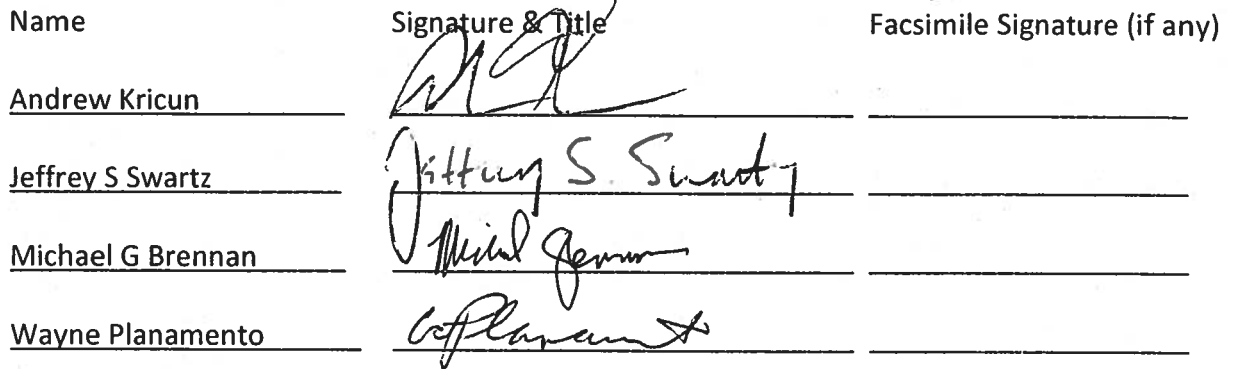 Name Signature & Title Facsimile Signature (if any)
Andrew Kricun
Jeffrey S Swartz Jeffrey S. Swartz
Michael G Brennan
Wayne Planamento